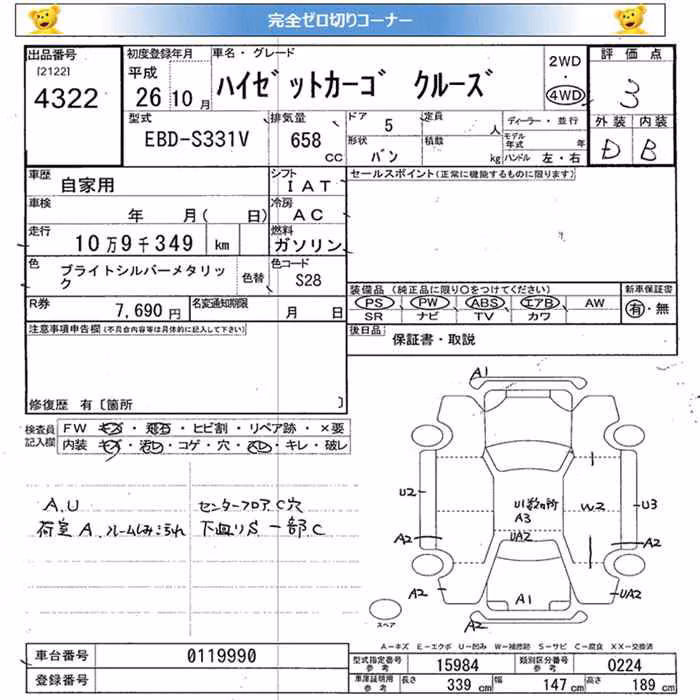 完全ゼロ切りコーナー
出品番号 初度登録年月 車名・グレード 評価点
[2122] 平成 2WD
4322 26 10月 ハイゼットカーゴ クルーズ ・ 3
4WD
型式 排気量 ドア 5 定員 人 ディーラー・並行 外装 内装
EBD-S331V 658 CC 形状 バン 積載 kg モデル年式 年 D B
ハンドル 左・右
車歴 自家用 シフト IAT セールスポイント(正常に機能するものに限ります)
車検 年 月( 日) 冷房 AC
走行 10万9千349 km 燃料 ガソリン
色 ブライトシルバーメタリック 色替 色コード S28
装備品 (純正品に限り○をつけてください) 新車保証書
R券 7,690円 名変通知期限 月 日 PS PW ABS エアB AW 有・無
SR ナビ TV カワ
注意事項申告欄(不具合内容等は具体的に記入して下さい) 後日品 保証書・取説
修復歴 有〔箇所 〕
検査員記入欄 FW キズ・飛石・ヒビ割・リペア跡・×要
内装・キズ・汚れ・コゲ・穴・スレ・キレ・破レ
A1
U2 U1数ヶ所 W2 U3
A3
A.U センターフロアC穴
荷室A.ルームしみ汚れ 下廻りS 一部C
A2 UA2 A2
A2 A1 UA2
スペア A2
A-キズ E-エクボ U-凹み W-補修跡 S-サビ C-腐食 XX-交換済
車台番号 0119990 型式指定番号 参考 15984 類別区分番号 参考 0224
登録番号 車庫証明用 参考 長さ 339cm 幅 147cm 高さ 189cm